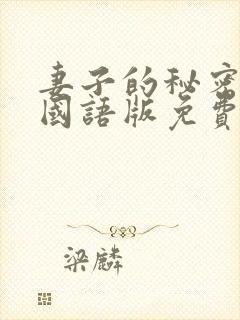 妻子的秘密
國語版免費
梁麟